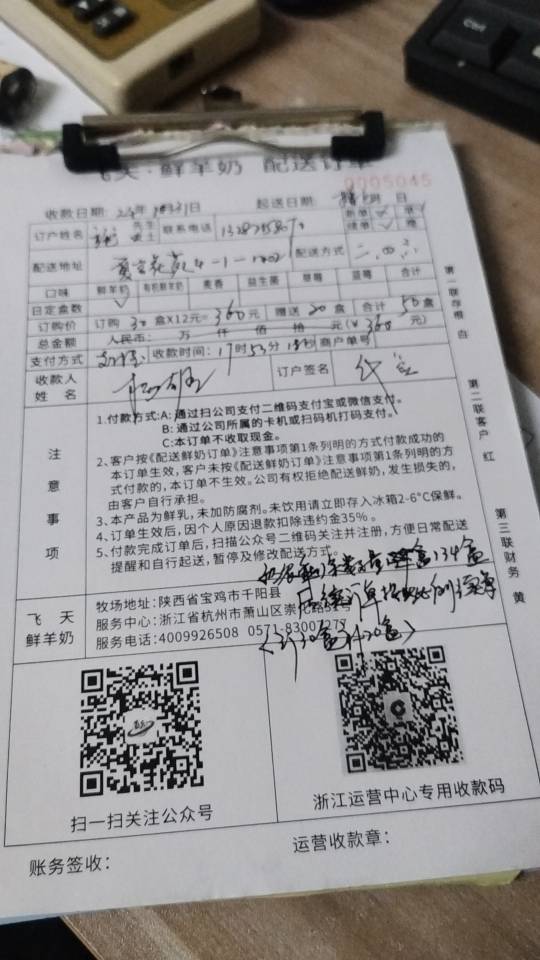 飞天·鲜羊奶 配送订单
0005045
收款日期: 24年 月 日 起送日期: 月 日
订户姓名 先生 女士 联系电话 新单 续单
配送地址 4-1-1702 配送方式 二.四.六
口味 鲜羊奶 有机鲜羊奶 麦香 益生菌 草莓 蓝莓 合计
日定盒数 √
订购价 订购 30 盒X12元= 360 元 赠送 20 盒 合计 50 盒
总金额 人民币: 万 仟 佰 拾 元(¥ 360 元)
支付方式 收款时间: 17时53分 秒 商户单号
收款人姓名 订户签名
注意事项
1.付款方式:A: 通过扫公司支付二维码支付宝或微信支付。
B: 通过公司所属的卡机或扫码机打码支付。
C:本订单不收取现金。
2、客户按《配送鲜奶订单》注意事项第1条列明的方式付款成功的
本订单生效,客户未按《配送鲜奶订单》注意事项第1条列明的方
式付款的,本订单不生效。公司有权拒绝配送鲜奶,发生损失的,
由客户自行承担。
3、本产品为鲜乳,未加防腐剂。未饮用请立即存入冰箱2-6°C保鲜。
4、订单生效后,因个人原因退款扣除违约金35%。
5、付款完成订单后,扫描公众号二维码关注并注册,方便日常配送
提醒和自行起送,暂停及修改配送方式。
盒134盒
飞天鲜羊奶
牧场地址:陕西省宝鸡市千阳县
服务中心:浙江省杭州市萧山区崇化路
服务电话:4009926508 0571-83007279
第一联存根 白
第二联客户 红
第三联财务 黄
扫一扫关注公众号
浙江运营中心专用收款码
账务签收:
运营收款章: